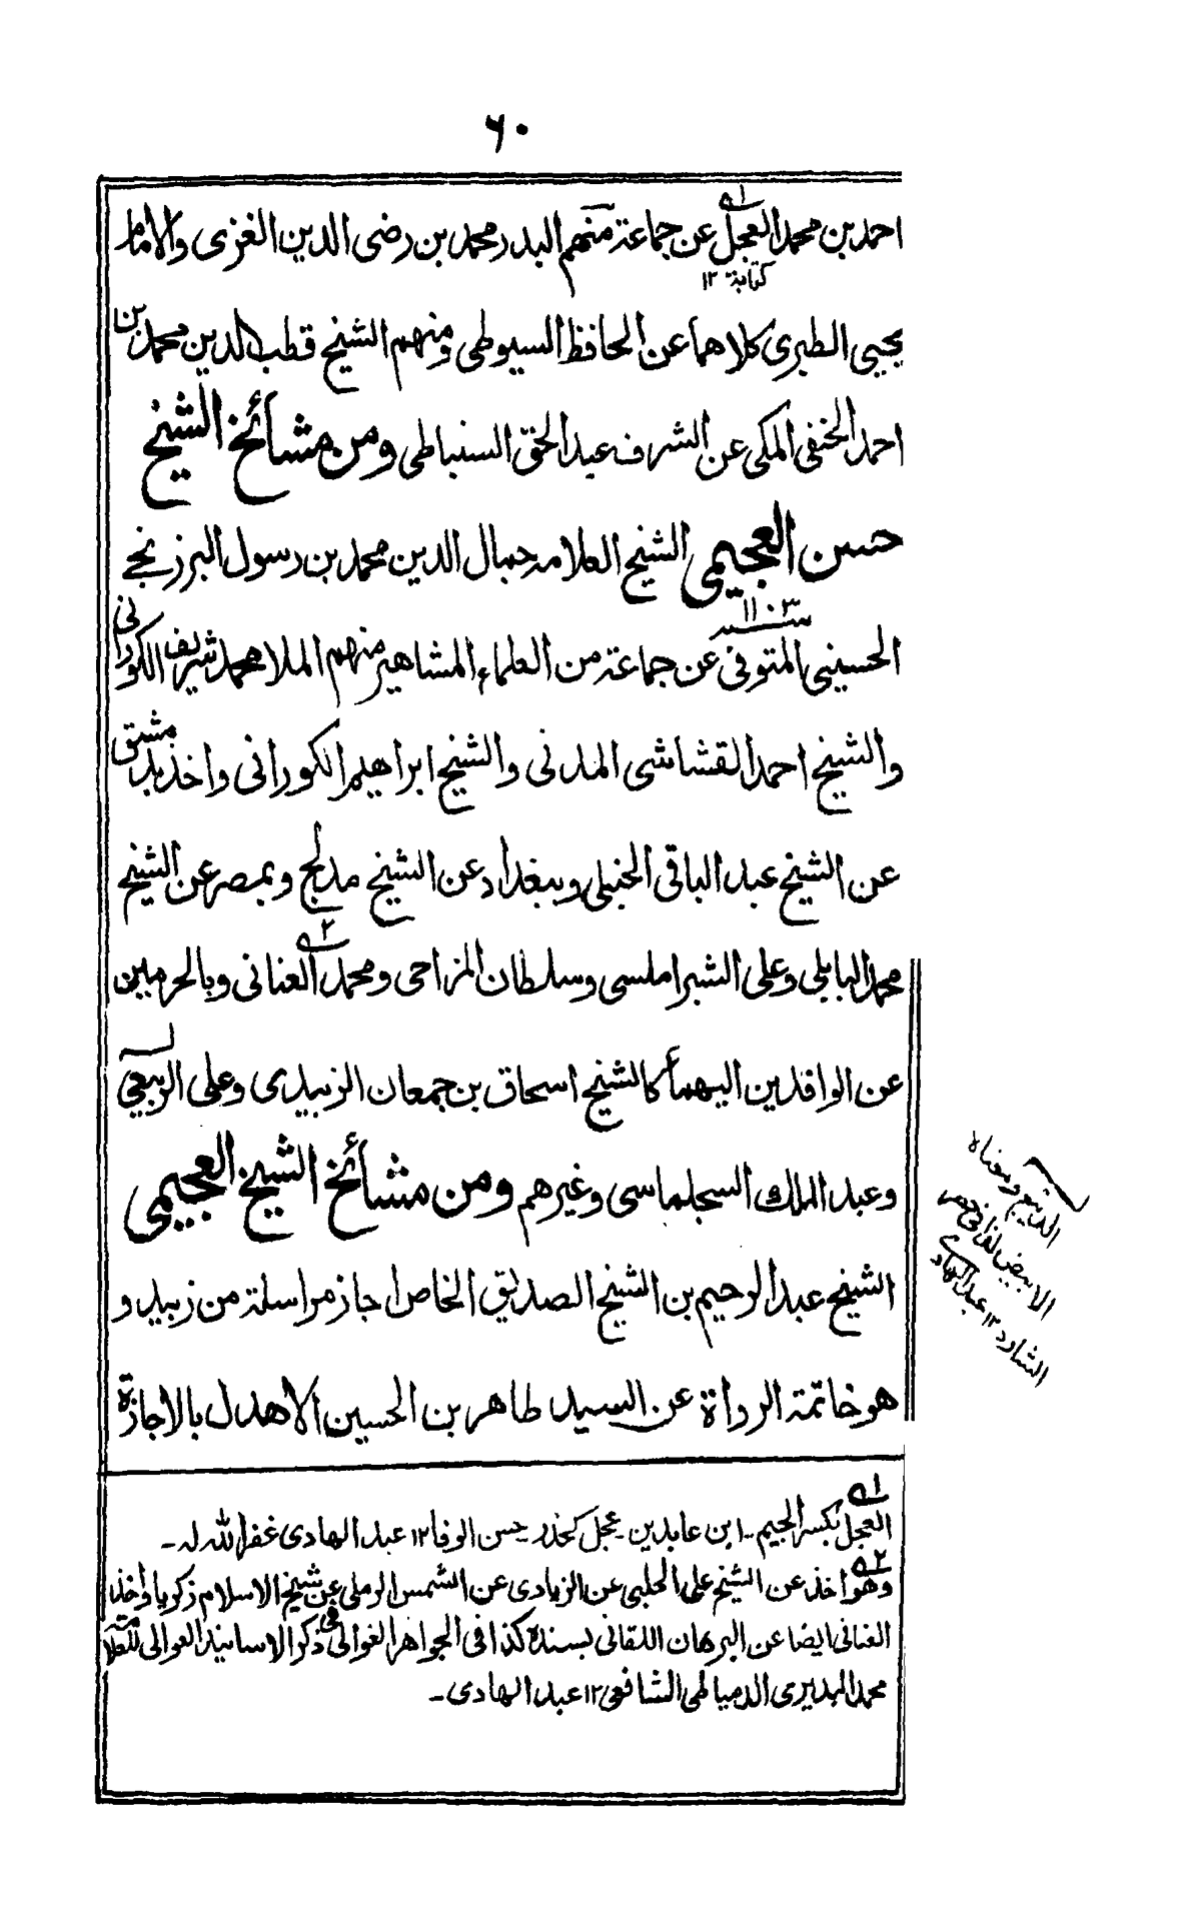 ۶۰
احمد بن محمد العجل عن جماعة منهم البدر محمد بن رضى الدين الغزى والامام
كتابة ۱۲
يحيى الطبرى كلاهما عن الحافظ السيوطى ومنهم الشيخ قطب الدين محمد بن
احمد الحنفى المكى عن الشرف عبد الحق السنباطى ومن مشائخ الشيخ
حسن العجيمى الشيخ العلامة جمال الدين محمد بن رسول البرزنجى
الحسينى المتوفى سنة ۱۱۰۳ عن جماعة من العلماء المشاهير منهم الملا محمد شريف الكورانى
والشيخ احمد القشاشى المدنى والشيخ ابراهيم الكورانى واخذ بدمشق
عن الشيخ عبد الباقى الحنبلى وببغداد عن الشيخ مدلج وبمصر عن الشيخ
محمد البابلى وعلى الشبراملسى وسلطان المزاحى ومحمد العنانى ۲ وبالحرمين
عن الوافدين اليهما كالشيخ اسحاق بن جمعان الزبيدى وعلى الربيعى
وعبد الملك السجلماسى وغيرهم ومن مشائخ الشيخ العجيمى
الشيخ عبد الرحيم بن الشيخ الصديق الخاص اجاز مراسلة من زبيد و
هو خاتمة الرواة عن السيد طاهر بن الحسين الاهدل بالاجازة
الديبع ومعناه
الابيض
الشارد ۱۲ عبد الهادى
۱ العجل بكسر الجيم ـ ابن عابدين ـ عجل كحذر ـ حسن الوفا ۱۲ عبد الهادى غفر الله له ـ
۲ وهو اخذ عن الشيخ على الحلبى عن الزيادى عن الشمس الرملى عن شيخ الاسلام زكريا واخذ
العنانى ايضا عن البرهان اللقانى بسنده كذا فى الجواهر الغوالى فى ذكر الاسانيد العوالى
محمد البديرى الدمياطى الشافعى ۱۲ عبد الهادى ـ